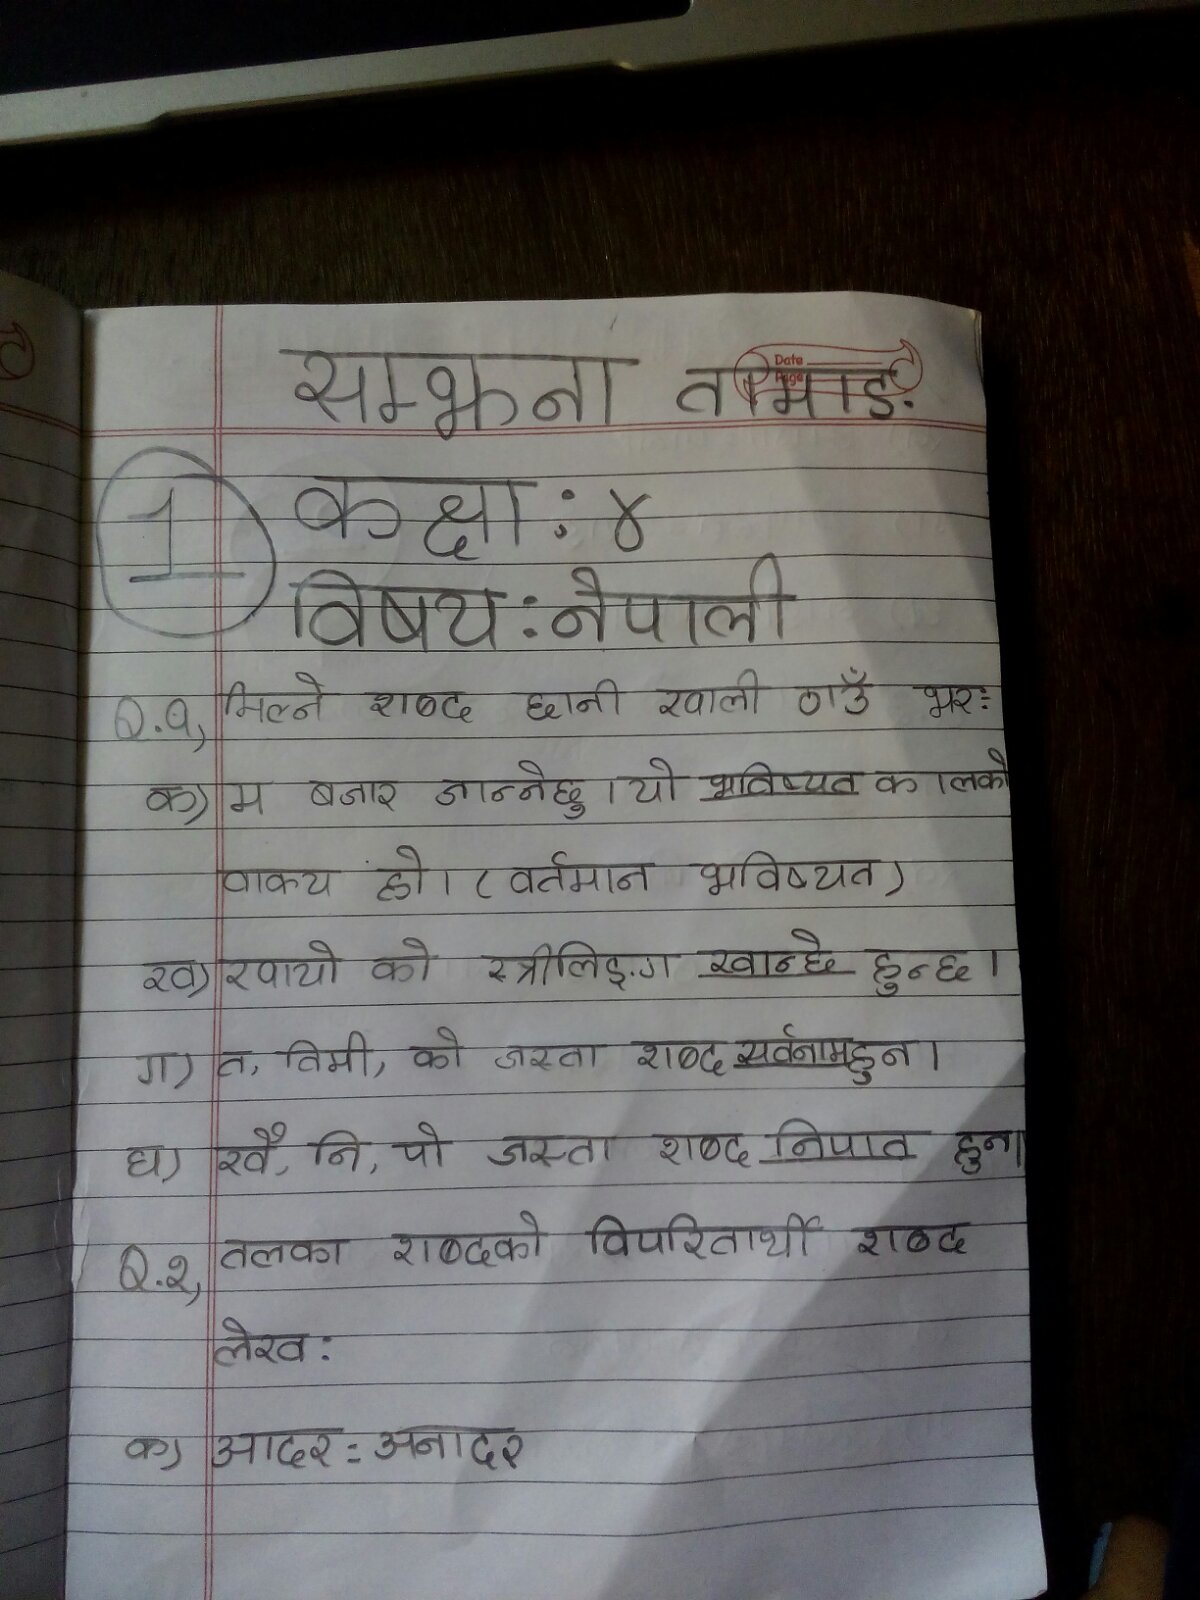 Date
Page
सम्झना तामाङ
1
कक्षा : ४
विषय : नेपाली
Q.१, मिल्ने शब्द छानी खाली ठाउँ भर :
क) म बजार जान्नेछु । यो भविष्यत कालको
वाक्य हो । (वर्तमान भविष्यत)
ख) खायो को स्त्रीलिङ्ग खान्छे हुन्छ ।
ग) त, तिमी, को जस्ता शब्द सर्वनाम हुन ।
घ) खै, नि, पो जस्ता शब्द निपात हुन ।
Q.२, तलका शब्दको विपरितार्थी शब्द
लेख :
क) आदर = अनादर